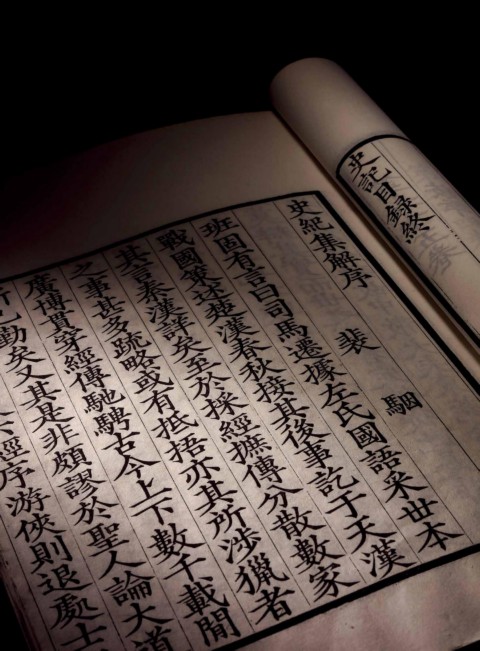 史記目録終
史紀集解序 裴 駰
班固有言曰司馬遷據左氏國語采世本
戰國策述楚漢春秋接其後事訖于天漢
其言秦漢詳矣至於採經摭傳分散數家
之事甚多疏略或有抵捂亦其所涉獵者
廣博貫穿經傳馳騁古今上下數千載閒
已勤矣又其是非頗謬於聖人論大道
經序游俠則退處士